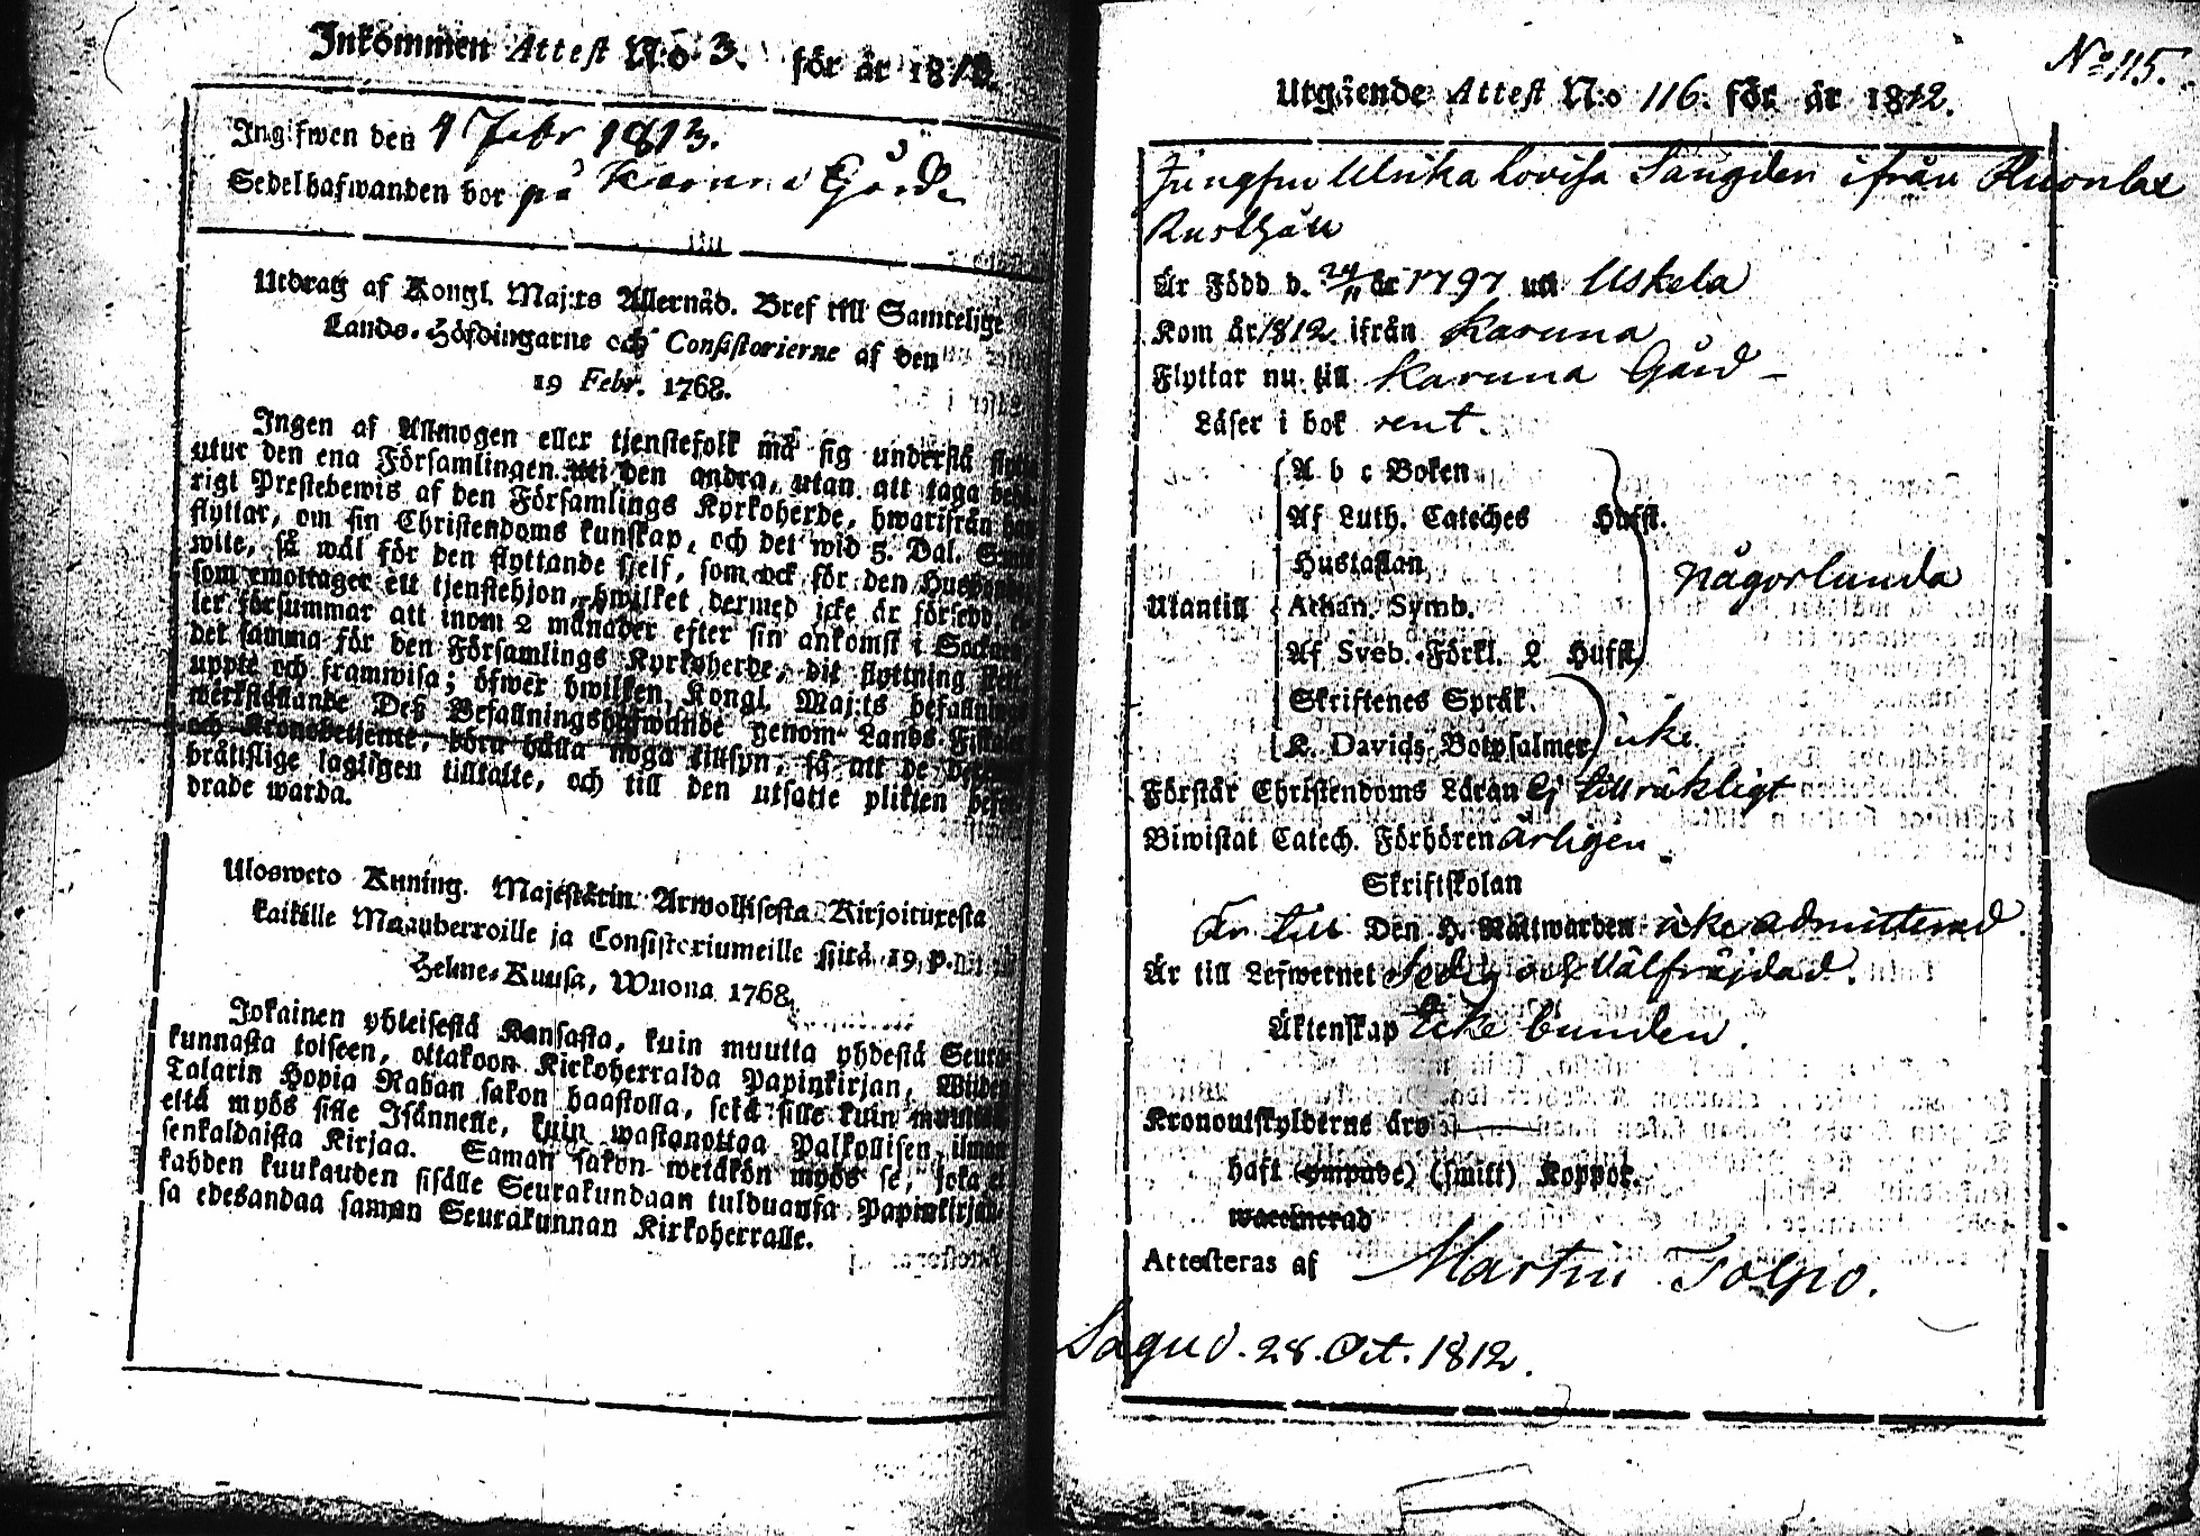 Inkommen Attest N:o 3. för år 1812.
Ingifwen den 4 Febr 1813.
Sedelhafwanden bor på Karuna Gård
Utdrag af Kongl. Maj:ts Allernåd. Bref till Samtelige
Lands-Höfdingarne och Consistorierne af den
19 Febr. 1768.
Ingen af Allmogen eller tjenstefolk må sig understå flytta
utur den ena Församlingen uti den andra, utan att taga behö-
rigt Prestebewis af den Församlings Kyrkoherde, hwarifrån han
flyttar, om sin Christendoms kunskap, och det wid 5. Dal. Smts
wite, så wäl för den flyttande sjelf, som ock för den Husbonde,
som emottager ett tjenstehjon, hwilket dermed icke är försedd, el-
ler försummar att inom 2 månader efter sin ankomst i Socknen
det samma för den Församlings Kyrkoherde, dit flyttning skett
uppte och framwisa; öfwer hwilken Kongl. Maj:ts befallnings
werkställande Deß Befallningshafwande genom Lands-Fiskaler
och Kronobetjente, böra hålla noga tillsyn, så att de
bråtslige lagligen tilltalte, och till den utsatte plikten befor-
drade warda.
Ulosweto Kuning. Majestätin Armollisesta Kirjoituxesta
kaikille Maanherroille ja Consistoriumeille siitä 19 p.
Helme-Kuusa, Wuona 1768.
Jokainen yhteisestä Kansasta, kuin muutta yhdestä Seura-
kunnasta toiseen, ottakoon Kirkoherralda Papinkirjan, Wiiden
Talarin Hopia Rahan sakon haastolla, sekä sille kuin muuttaa
että myös sille Isännelle, kuin wastanottaa Palkollisen ilman
senkaldaista Kirjaa. Saman sakon wetäkön myös se, joka ei
kahden kuukauden sisälle Seurakundaan tulduansa Papinkirjan-
sa edesandaa saman Seurakunnan Kirkoherralle.
No 115.
Utgående Attest N:o 116. för år 1812.
Jungfru Ulrika Lovisa Sangden ifrån Ruonlax
Rusthåll
Är Född d. 24/11 år 1797 uti Uskela
Kom år 1812 ifrån Karuna
Flyttar nu till Karuna Gård
Läser i bok rent.
A b c Boken
Af Luth. Cateches Hufst.
Hustaflan
någorlunda
Utantill Athan. Symb.
Af Sveb. Förkl. 2 Hufst.
Skriftenes Språk.
K. Davids Botpsalmer icke
Förstår Christendoms Läran Ej tillräkligt
Biwistat Catech. Förhören årligen.
Skriftskolan
Är till Den H. Nattwarden icke admitterad.
Är till Lefwernet Sedig och Välfräjdad.
Äktenskap Icke bunden.
Kronoutskylderne äro
haft (ympade) (smitt) Koppor.
waccinerad
Attesteras af Martin Tolpo.
Sagu d. 28. Oct. 1812.